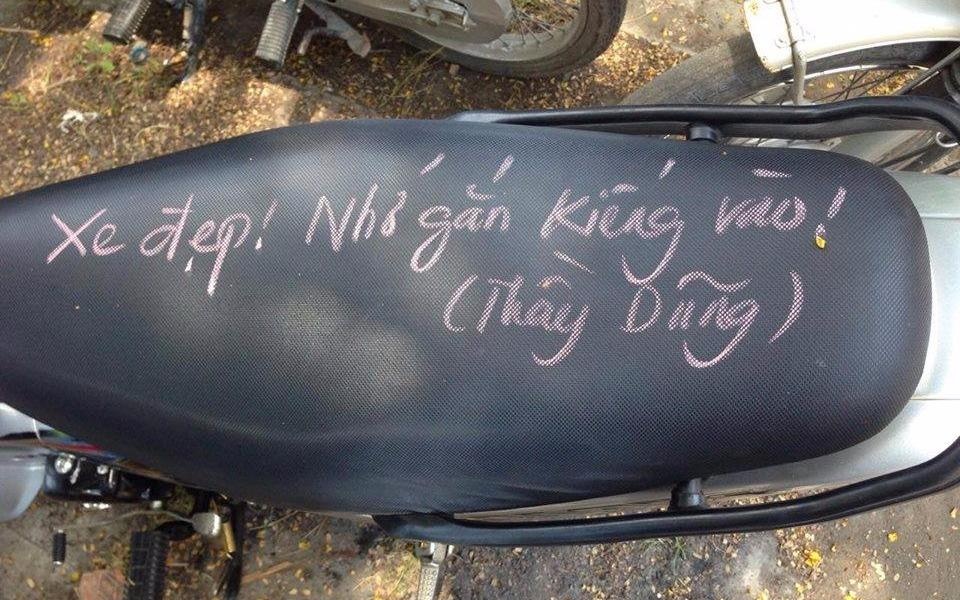 Xe đẹp! Nhớ gắn kiếng vào!
(Thầy Dũng)